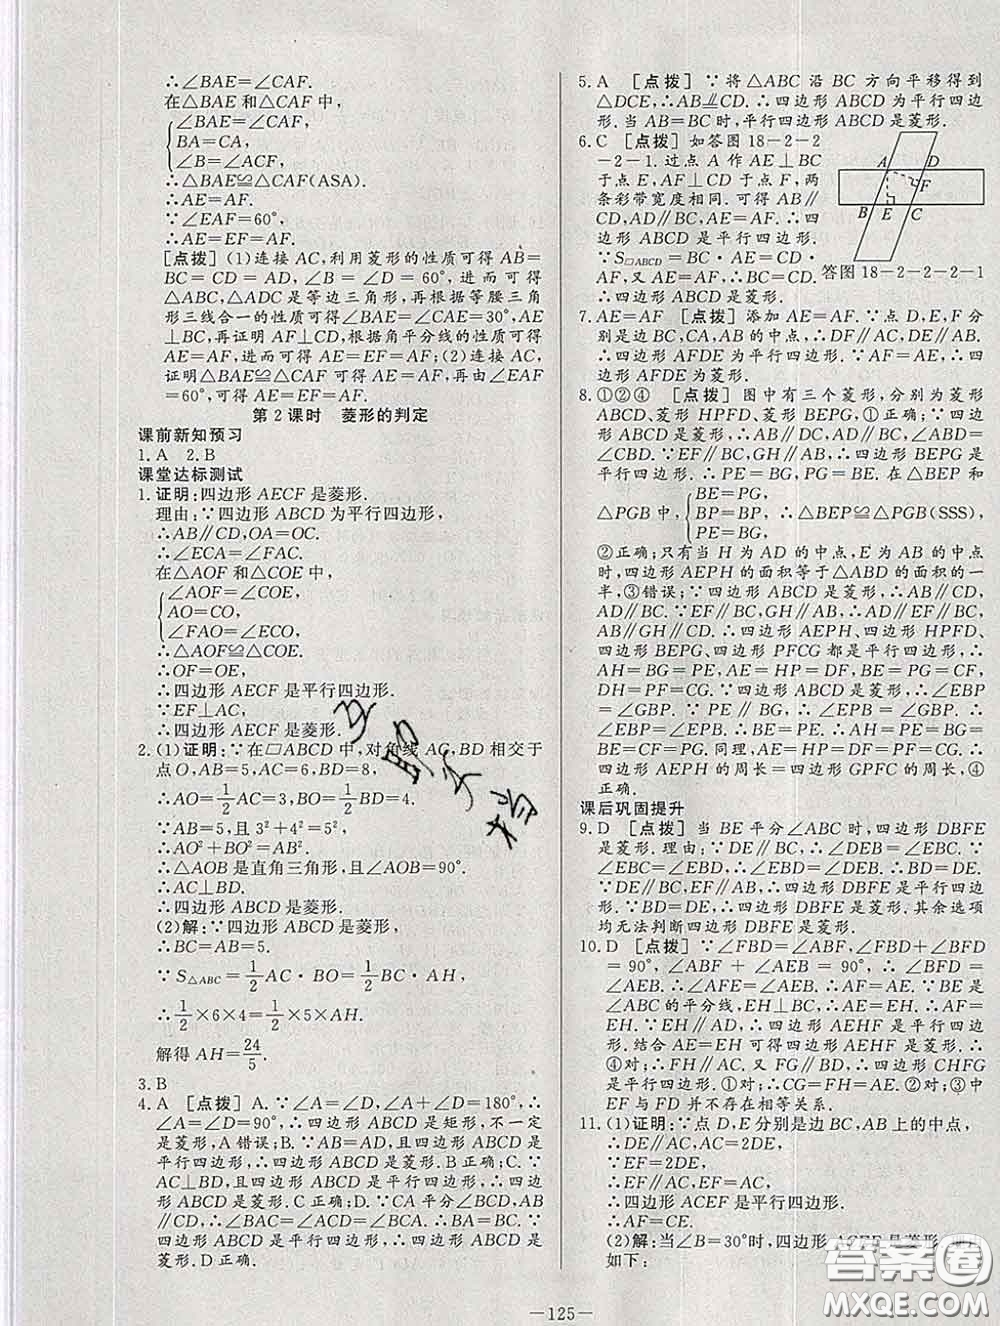 ∴∠BAE=∠CAF.
在△BAE和△CAF中,
∠BAE=∠CAF,
BA=CA,
∠B=∠ACF,
∴△BAE≌△CAF(ASA).
∴AE=AF.
∵∠EAF=60°,
∴AE=EF=AF.
[点拨] (1)连接AC,利用菱形的性质可得AB=
BC=CD=AD,∠B=∠D=60°,进而可得
△ABC,△ADC是等边三角形,再根据等腰三角
形三线合一的性质可得∠BAE=∠CAE=30°,AE
⊥BC,再证明AF⊥CD,根据角平分线的性质可得
AE=AF,进而可得AE=EF=AF;(2)连接AC,
证明△BAE≌△CAF可得AE=AF,再由∠EAF
=60°,可得AE=EF=AF.
第2课时 菱形的判定
课前新知预习
1.A 2.B
课堂达标测试
1.证明:四边形AECF是菱形.
理由:∵四边形ABCD为平行四边形,
∴AB∥CD,OA=OC.
∴∠ECA=∠FAC.
在△AOF和△COE中,
∠AOF=∠COE,
AO=CO,
∠FAO=∠ECO,
∴△AOF≌△COE.
∴OF=OE,
∴四边形AECF是平行四边形.
∵EF⊥AC,
∴四边形AECF是菱形.
2.(1)证明:∵在▱ABCD中,对角线AC,BD相交于
点O,AB=5,AC=6,BD=8,
∴AO=1/2AC=3,BO=1/2BD=4.
∵AB=5,且3²+4²=5²,
∴AO²+BO²=AB².
∴△AOB是直角三角形,且∠AOB=90°.
∴AC⊥BD.
∴四边形ABCD是菱形.
(2)解:∵四边形ABCD是菱形,
∴BC=AB=5.
∵S△ABC=1/2AC·BO=1/2BC·AH,
∴1/2×6×4=1/2×5×AH.
解得AH=24/5.
3.B
4.A [点拨] A.∵∠A=∠D,∠A+∠D=180°,∴
∠A=∠D=90°,∴四边形ABCD是矩形,不一定
是菱形,A错误;B.∵AB=AD,且四边形ABCD是
平行四边形,∴四边形ABCD是菱形.B正确;C.∵
AC⊥BD,且四边形ABCD是平行四边形,∴四边形
ABCD是菱形.C正确;D.∵CA平分∠BCD,AB
∥CD,∴∠BAC=∠ACD=∠BCA.∴AB=BC,∵
四边形ABCD是平行四边形,∴四边形ABCD是
菱形.D正确.
5.A [点拨] ∵将△ABC沿BC方向平移得到
△DCE,∴AB∥CD.∴四边形ABCD为平行四边
形.当AB=BC时,平行四边形ABCD是菱形.
6.C [点拨] 如答图18-2-2
-2-1.过点A作AE⊥BC
于点E,AF⊥CD于点F,两
条彩带宽度相同.可得AB∥
CD,AD∥BC,AE=AF.∴四
边形ABCD是平行四边形.
∵S▱ABCD=BC·AE=CD·
AF,又AE=AF.∴BC=CD,∴四边形ABCD是菱形.
A D F B E C
答图18-2-2-2-1
7.AE=AF [点拨] 添加AE=AF.∵点D,E,F分
别是边BC,CA,AB的中点,∴DF∥AC,DE∥AB.
∴四边形AFDE为平行四边形.∵AE=AF,∴四边
形AFDE为菱形.
8.①②④ [点拨] 图中有三个菱形,分别为菱形
ABCD、菱形HPFD、菱形BEPG,①正确;∵四边形
ABCD是菱形,∴AB∥DC,AD∥BC,∠ABD=
∠CBD.∵EF∥BC,GH∥AB,∴四边形BEPG是
平行四边形.∴PE=BG,PG=BE.在△BEP和
△PGB中,
BE=PG,
BP=BP,
PE=BG,
∴△BEP≌△PGB(SSS),
②正确;只有当H为AD的中点,E为AB的中点
时,四边形AEPH的面积等于△ABD的面积的一
半,③错误;∵四边形ABCD是菱形,∴AB∥CD,
AD∥BC.∵EF∥BC,GH∥AB,∴AD∥EF∥BC,
AB∥GH∥CD.∴四边形AEPH、四边形HPFD、
四边形BEPG、四边形PFCG都是平行四边形.∴
AH=BG=PE,AE=HP=DF,EP=BG,PF=
GC,BE=PG=CF.∵四边形ABCD是菱形,∴∠EBP
=∠GBP.∵PE∥BG,∴∠EPB=∠GBP.∴∠EBP
=∠EPB.∴BE=PE.∴AE+PE=AE+BE=
AB.∴AE+PE=AB.同理,AH+PH=BC,∴四
边形AEPH的周长=四边形GPFC的周长,④
正确.
课后巩固提升
9.D [点拨] 当BE平分∠ABC时,四边形DBFE
是菱形.理由:∵DE∥BC,∴∠DEB=∠EBC.∵
∠EBC=∠EBD,∴∠EBD=∠DEB.∴BD=DE.
∵DE∥BC,EF∥AB,∴四边形DBFE是平行四边
形.∵BD=DE,∴四边形DBFE是菱形.其余选项
均无法判断四边形DBFE是菱形.
10.D [点拨] ∵∠FBD=∠ABF,∠FBD+∠BFD
=90°,∠ABF+∠AEB=90°,∴∠BFD=
∠AEB.∴∠AFE=∠AEB.∴AF=AE.∵BE是
∠ABC的平分线,EH⊥BC,∴AE=EH.∴AF=
EH.∵EH∥AD,∴四边形AEHF是平行四边
形.结合AE=EH可得四边形AEHF是菱形.∴
④对;∵FG∥AC,又FG∥BD,∴四边形CHFG
是平行四边形.①对;∴CG=FH=AF.②对;③中
EF与FD并不存在相等关系.
11.(1)证明:∵点D,E分别是边BC,AB上的中点,
∴DE∥AC,AC=2DE,
∵EF=2DE,
∴EF∥AC,EF=AC,
∴四边形ACEF是平行四边形.
∴AF=CE.
(2)解:当∠B=30°时,四边形ACEF是菱形,理由
如下:
—125—
答案圈
MXQE.COM